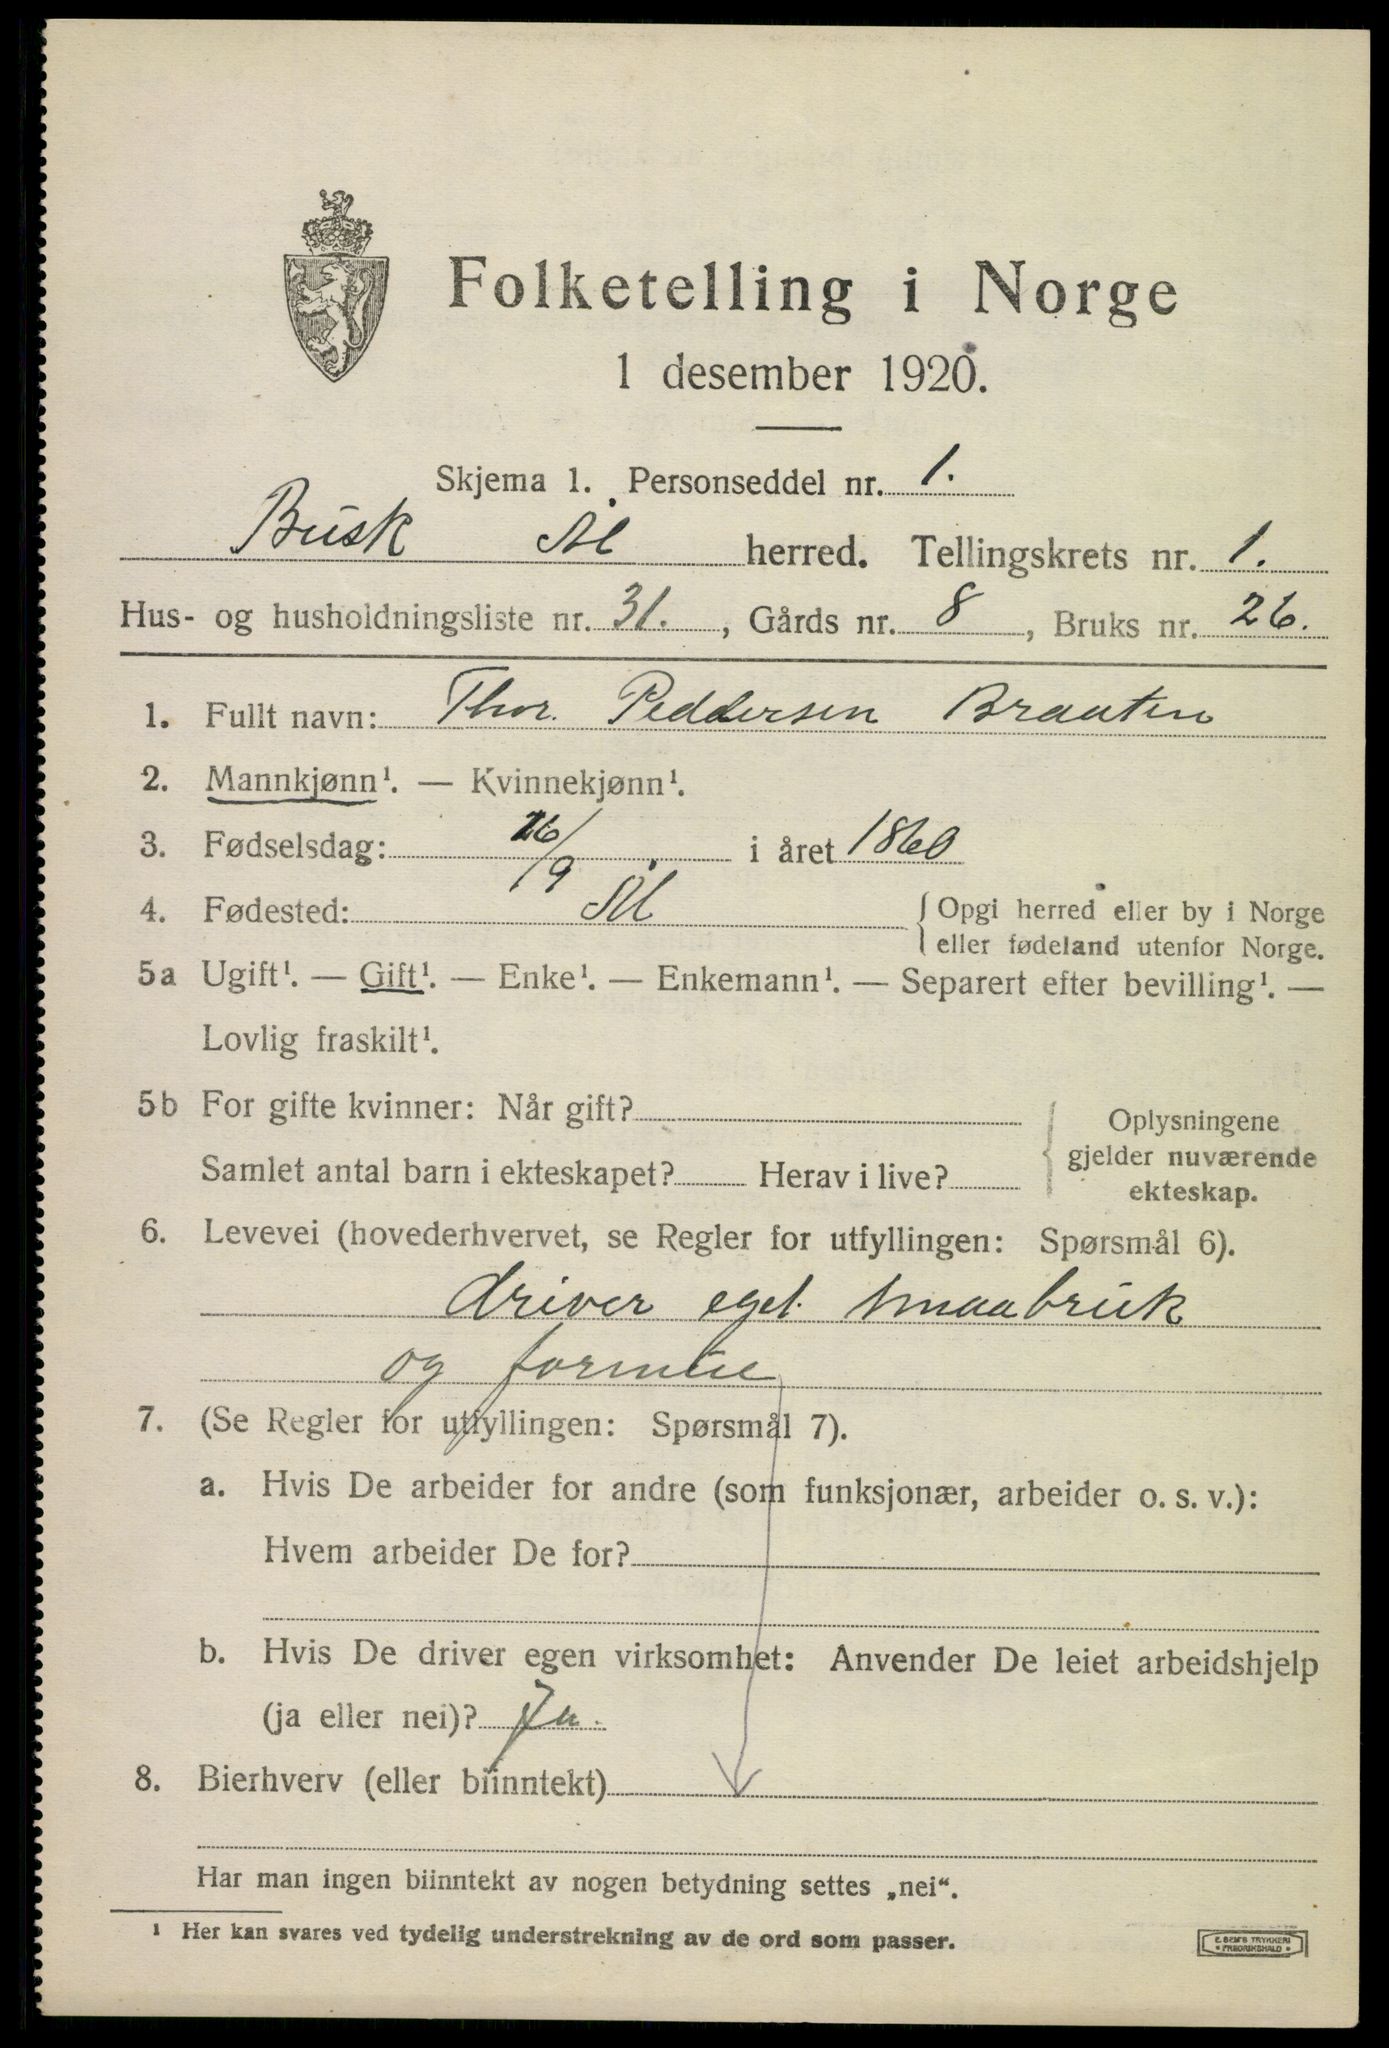 Folketelling i Norge
1 desember 1920.
Skjema 1. Personseddel nr. 1.
Busk Ål herred. Tellingskrets nr. 1.
Hus- og husholdningsliste nr. 31., Gårds nr. 8, Bruks nr. 26.
1. Fullt navn: Thor. Peddersen Braaten
2. Mannkjønn¹. — Kvinnekjønn¹.
3. Fødselsdag: 26/9 i året 1860
4. Fødested: Ål {Opgi herred eller by i Norge
eller fødeland utenfor Norge.
5a Ugift¹. — Gift¹. — Enke¹. — Enkemann¹. — Separert efter bevilling¹. —
Lovlig fraskilt¹.
5b For gifte kvinner: Når gift?
Samlet antal barn i ekteskapet? Herav i live?
{Oplysningene
gjelder nuværende
ekteskap.
6. Levevei (hovederhvervet, se Regler for utfyllingen: Spørsmål 6).
driver eget smaabruk
og formue
7. (Se Regler for utfyllingen: Spørsmål 7).
a. Hvis De arbeider for andre (som funksjonær, arbeider o. s. v.):
Hvem arbeider De for?
b. Hvis De driver egen virksomhet: Anvender De leiet arbeidshjelp
(ja eller nei)? Ja.
8. Bierhverv (eller biinntekt)
Har man ingen biinntekt av nogen betydning settes „nei“.
¹ Her kan svares ved tydelig understrekning av de ord som passer.
E. SEM'S TRYKKERI
• FREDRIKSHALD •